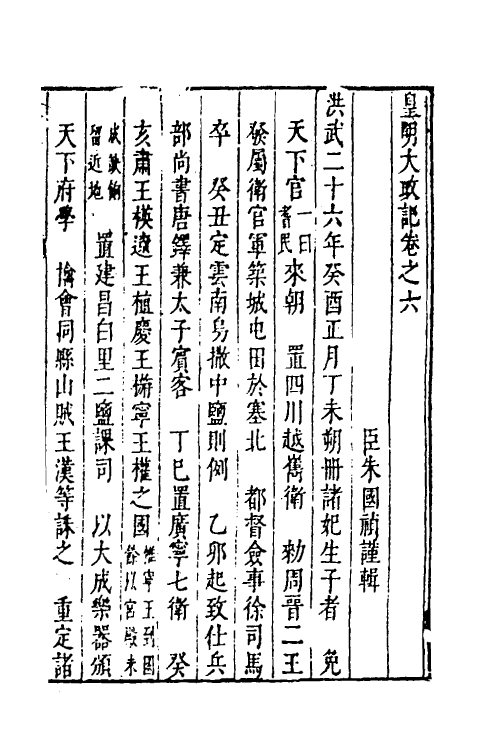 皇明大政記卷之六
臣朱國禎謹輯
洪武二十六年癸酉正月丁未朔冊諸妃生子者　免
天下官一曰耆民來朝　置四川越嶲衛　勑周晉二王
發屬衛官軍築城屯田於塞北　都督僉事徐司馬
卒　癸丑定雲南烏撒中鹽則例　乙卯起致仕兵
部尚書唐鐸兼太子賓客　丁巳置廣寧七衛　癸
亥肅王楧遼王植慶王㮵寧王權之國惟寧王到國餘以宮殿未
成暫留近地　置建昌白里二鹽課司　以大成樂器頒
天下府學　擒會同縣山賊王漢等誅之　重定諸